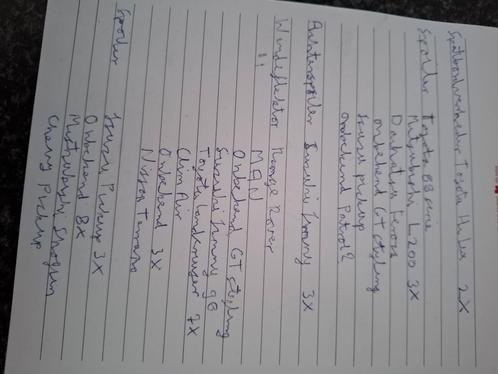 Spatbordverbreder Toyota Hilux 2X
Spoiler Toyota 88 mm
Mitsubishi L200 3X
Daihatsu Feroza
onbekend Gt styling
Isuzu pickup
onbekend Patrol?
Achterspoiler Suzuki Jimny 3X
Windeflektor Range Rover
" MAN
Onbekend GT styling
Suzuki Jimny 98
Toyota Landcruiser 7X
Clim Air
Onbekend 3X
Nissan Terrano
Spoiler Isuzu Pickup 3X
Onbekend 8X
Mitsubishi Shogun
Pickup